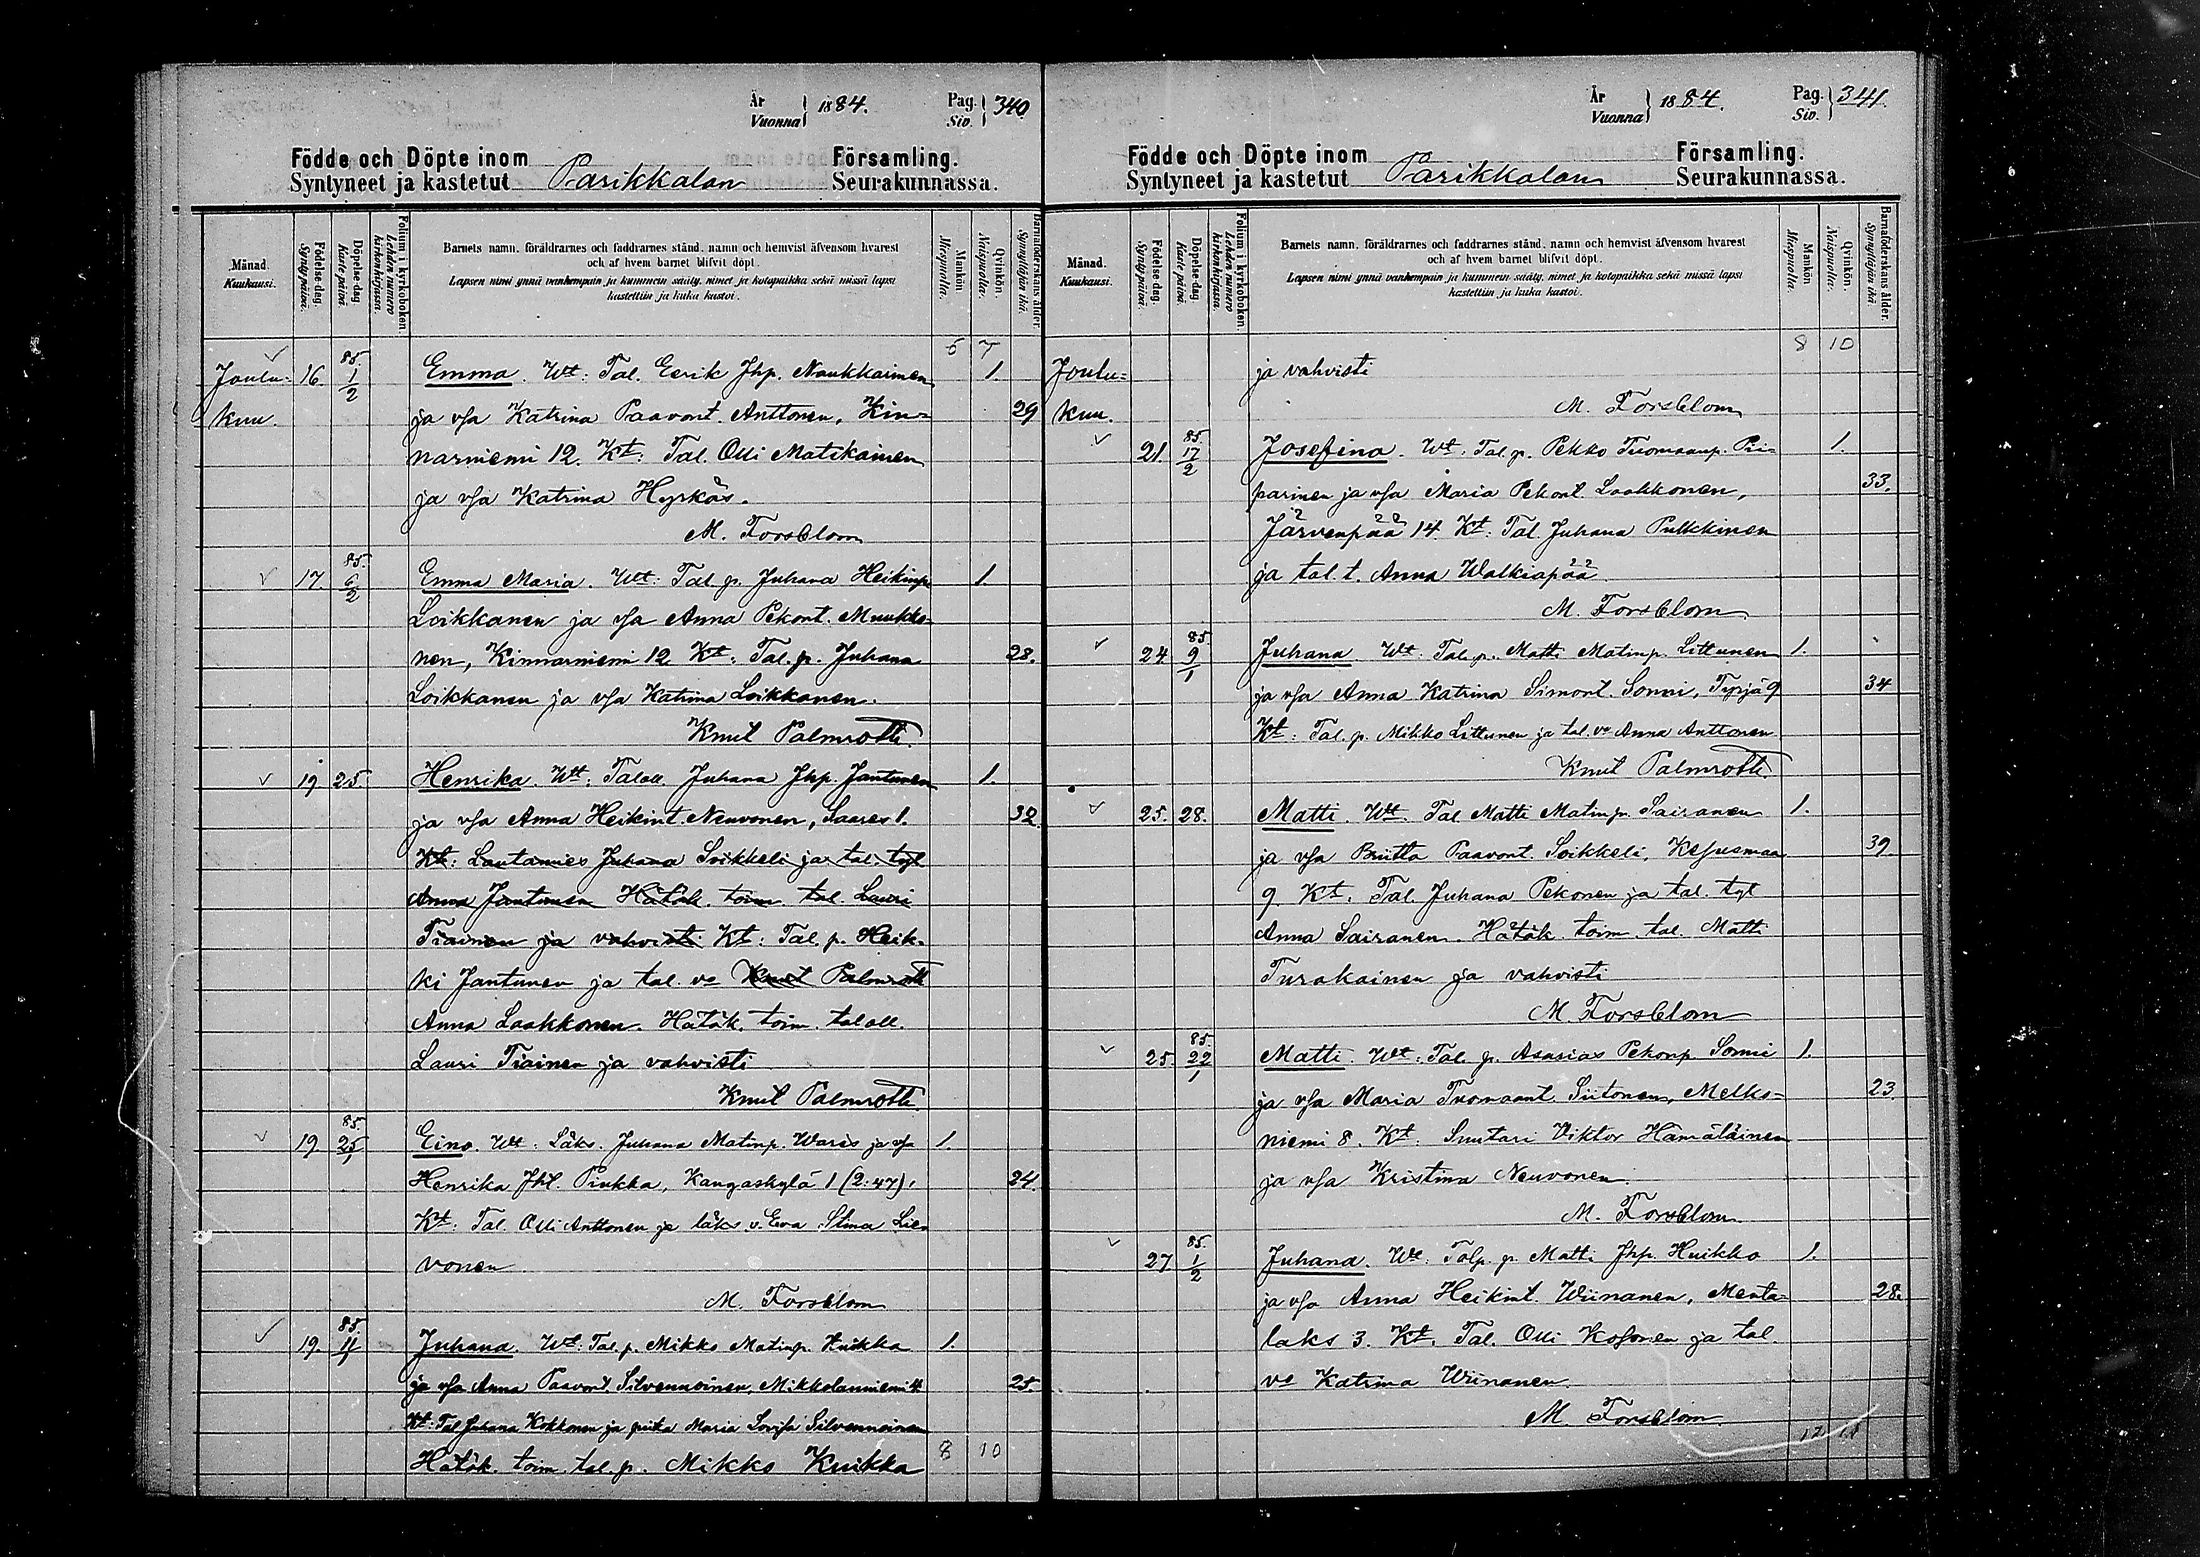 År
Vuonna } 1884. Pag.
Siv. } 340
Födde och Döpte inom Parikkalan Församling.
Syntyneet ja kastetut Seurakunnassa.
Månad. Kuukausi.
Födelse-dag. Syntypäivä.
Döpelse-dag. Kastepäivä.
Folium i kyrkoboken. Lehden numero kirkonkirjassa.
Barnets namn, föräldrarnes och faddrarnes stånd, namn och hemvist äfvensom hvarest
och af hvem barnet blifvit döpt.
Lapsen nimi ynnä vanhempain ja kummein sääty, nimet ja kotopaikka sekä missä lapsi
kastettiin ja kuka kastoi.
Mankön. Miespuolia.
Qvinkön. Naispuolia.
Barnaföderskans ålder. Synnyttäjän ikä.
6 7
Joulu- 16. 85. 1/2 Emma. Wt: Tal. Eerik Jhp. Naukkarinen 1.
kuu. ja vfa Katrina Paavont. Anttonen, Kin- 29
narniemi 12. Kt: Tal. Olli Matikainen
ja vfa Katrina Hyrkäs.
M. Forsblom
17. 85. 6/2 Emma Maria. Wtt: Tal. p. Juhana Heikinp. 1.
Loikkanen ja vfa Anna Pekont. Muukko-
nen, Kinnarniemi 12 Kt: Tal. p. Juhana 28.
Loikkanen ja vfa Katrina Loikkanen.
Knut Palmroth.
19 25. Henrika. Wtt: Taloll. Juhana Jhp. Jantunen 1.
ja vfa Anna Heikint. Neuvonen, Saares 1. 32.
Kt: Lautamies Juhana Soikkeli ja tal. tyt
Anna Jantunen Hätäk. toim. tal. Lauri
Tiainen ja vahvisti Kt: Tal. p. Heik-
ki Jantunen ja tal. vo Knut Palmroth
Anna Laakkonen. Hätäk. toim. taloll.
Lauri Tiainen ja vahvisti
Knut Palmroth.
19. 85. 25/1 Eino. Wt: Läks. Juhana Matinp. Wares ja vfa 1.
Henrika Jht. Pinkka, Kangaskylä 1 (2:47). 24.
Kt: Tal. Olli Anttonen ja läks. v. Eva Stina Lie-
vonen
M. Forsblom
19. 85. Juhana. Wt: Tal. p. Mikko Matinp. Kuikka 1.
ja vfa Anna Paavont. Silvennoinen, Mikkolanniemi 4 25.
Kt: Tal Juhana Kokkonen ja piika Maria Lovisa Silvennoinen
Hätäk. toim. tal. p. Mikko Kuikka 8 10
År
Vuonna } 1884. Pag.
Siv. } 341.
Födde och Döpte inom Parikkalan Församling.
Syntyneet ja kastetut Seurakunnassa.
Månad. Kuukausi.
Födelse-dag. Syntypäivä.
Döpelse-dag. Kastepäivä.
Folium i kyrkoboken. Lehden numero kirkonkirjassa.
Barnets namn, föräldrarnes och faddrarnes stånd, namn och hemvist äfvensom hvarest
och af hvem barnet blifvit döpt.
Lapsen nimi ynnä vanhempain ja kummein sääty, nimet ja kotopaikka sekä missä lapsi
kastettiin ja kuka kastoi.
Mankön. Miespuolia.
Qvinkön. Naispuolia.
Barnaföderskans ålder. Synnyttäjän ikä.
8 10
Joulu- ja vahvisti
kuu. M. Forsblom
21. 85. 17/2 Josefina. Wt: Tal. p. Pekko Tuomaanp. Pii- 1.
parinen ja vfa Maria Pekont. Laakkonen, 33.
Järvenpää 14. Kt: Tal. Juhana Pulkkinen
ja tal. t. Anna Walkiapää
M. Forsblom
24 85. 9/1 Juhana. Wt: Tal. p. Matti Matinp. Littunen 1.
ja vfa Anna Katrina Simont. Sonni, Tyrjä 9 34
Kt: Tal. p. Mikko Littunen ja tal. vo Anna Anttonen
Knut Palmroth.
25. 28. Matti. Wtt: Tal Matti Matinp. Sairanen 1.
ja vfa Briitta Paavont. Soikkeli, Kesusmaa 39.
9. Kt: Tal. Juhana Pekonen ja tal. tyt
Anna Sairanen. Hätäk. toim. tal. Matti
Turakainen ja vahvisti
M. Forsblom
25. 85. 22/1 Matti. Wt: Tal. p. Asarias Pekonp. Sonni 1.
ja vfa Maria Tuomaant. Siitonen, Melko- 23.
niemi 8. Kt: Suutari Viktor Hämäläinen
ja vfa Kristina Neuvonen.
M. Forsblom
27 85. 1/2 Juhana. Wt: Talp. p. Matti Jhp. Huikko 1.
ja vfa Anna Heikint. Wiinanen, Menta- 28.
laks 3. Kt: Tal. Olli Kosonen ja tal.
vo Katrina Wiinanen.
M. Forsblom.
12